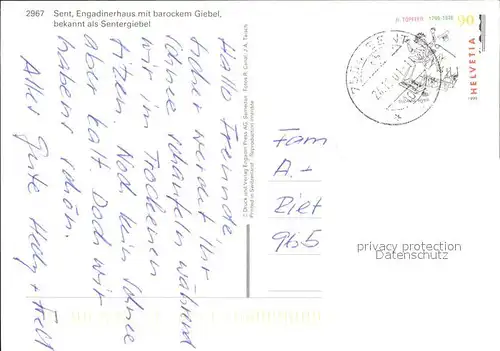 2967 Sent, Engadinerhaus mit barockem Giebel,
bekannt als Sentergiebel
Hallo Freunde,
sicher werdet Ihr
Schnee schaufeln während
wir im Trockenen
sitzen. Noch kein Schnee
aber kalt. Doch wir
habens schön.
Alles Gute Hedy +
© Druck und Verlag Engadin Press AG, Samedan
Printed in Switzerland Reproduction interdite
R. TÖPFFER 1799-1846
90
HELVETIA
Fam
A. +
Diet
965
privacy protection
Datenschutz